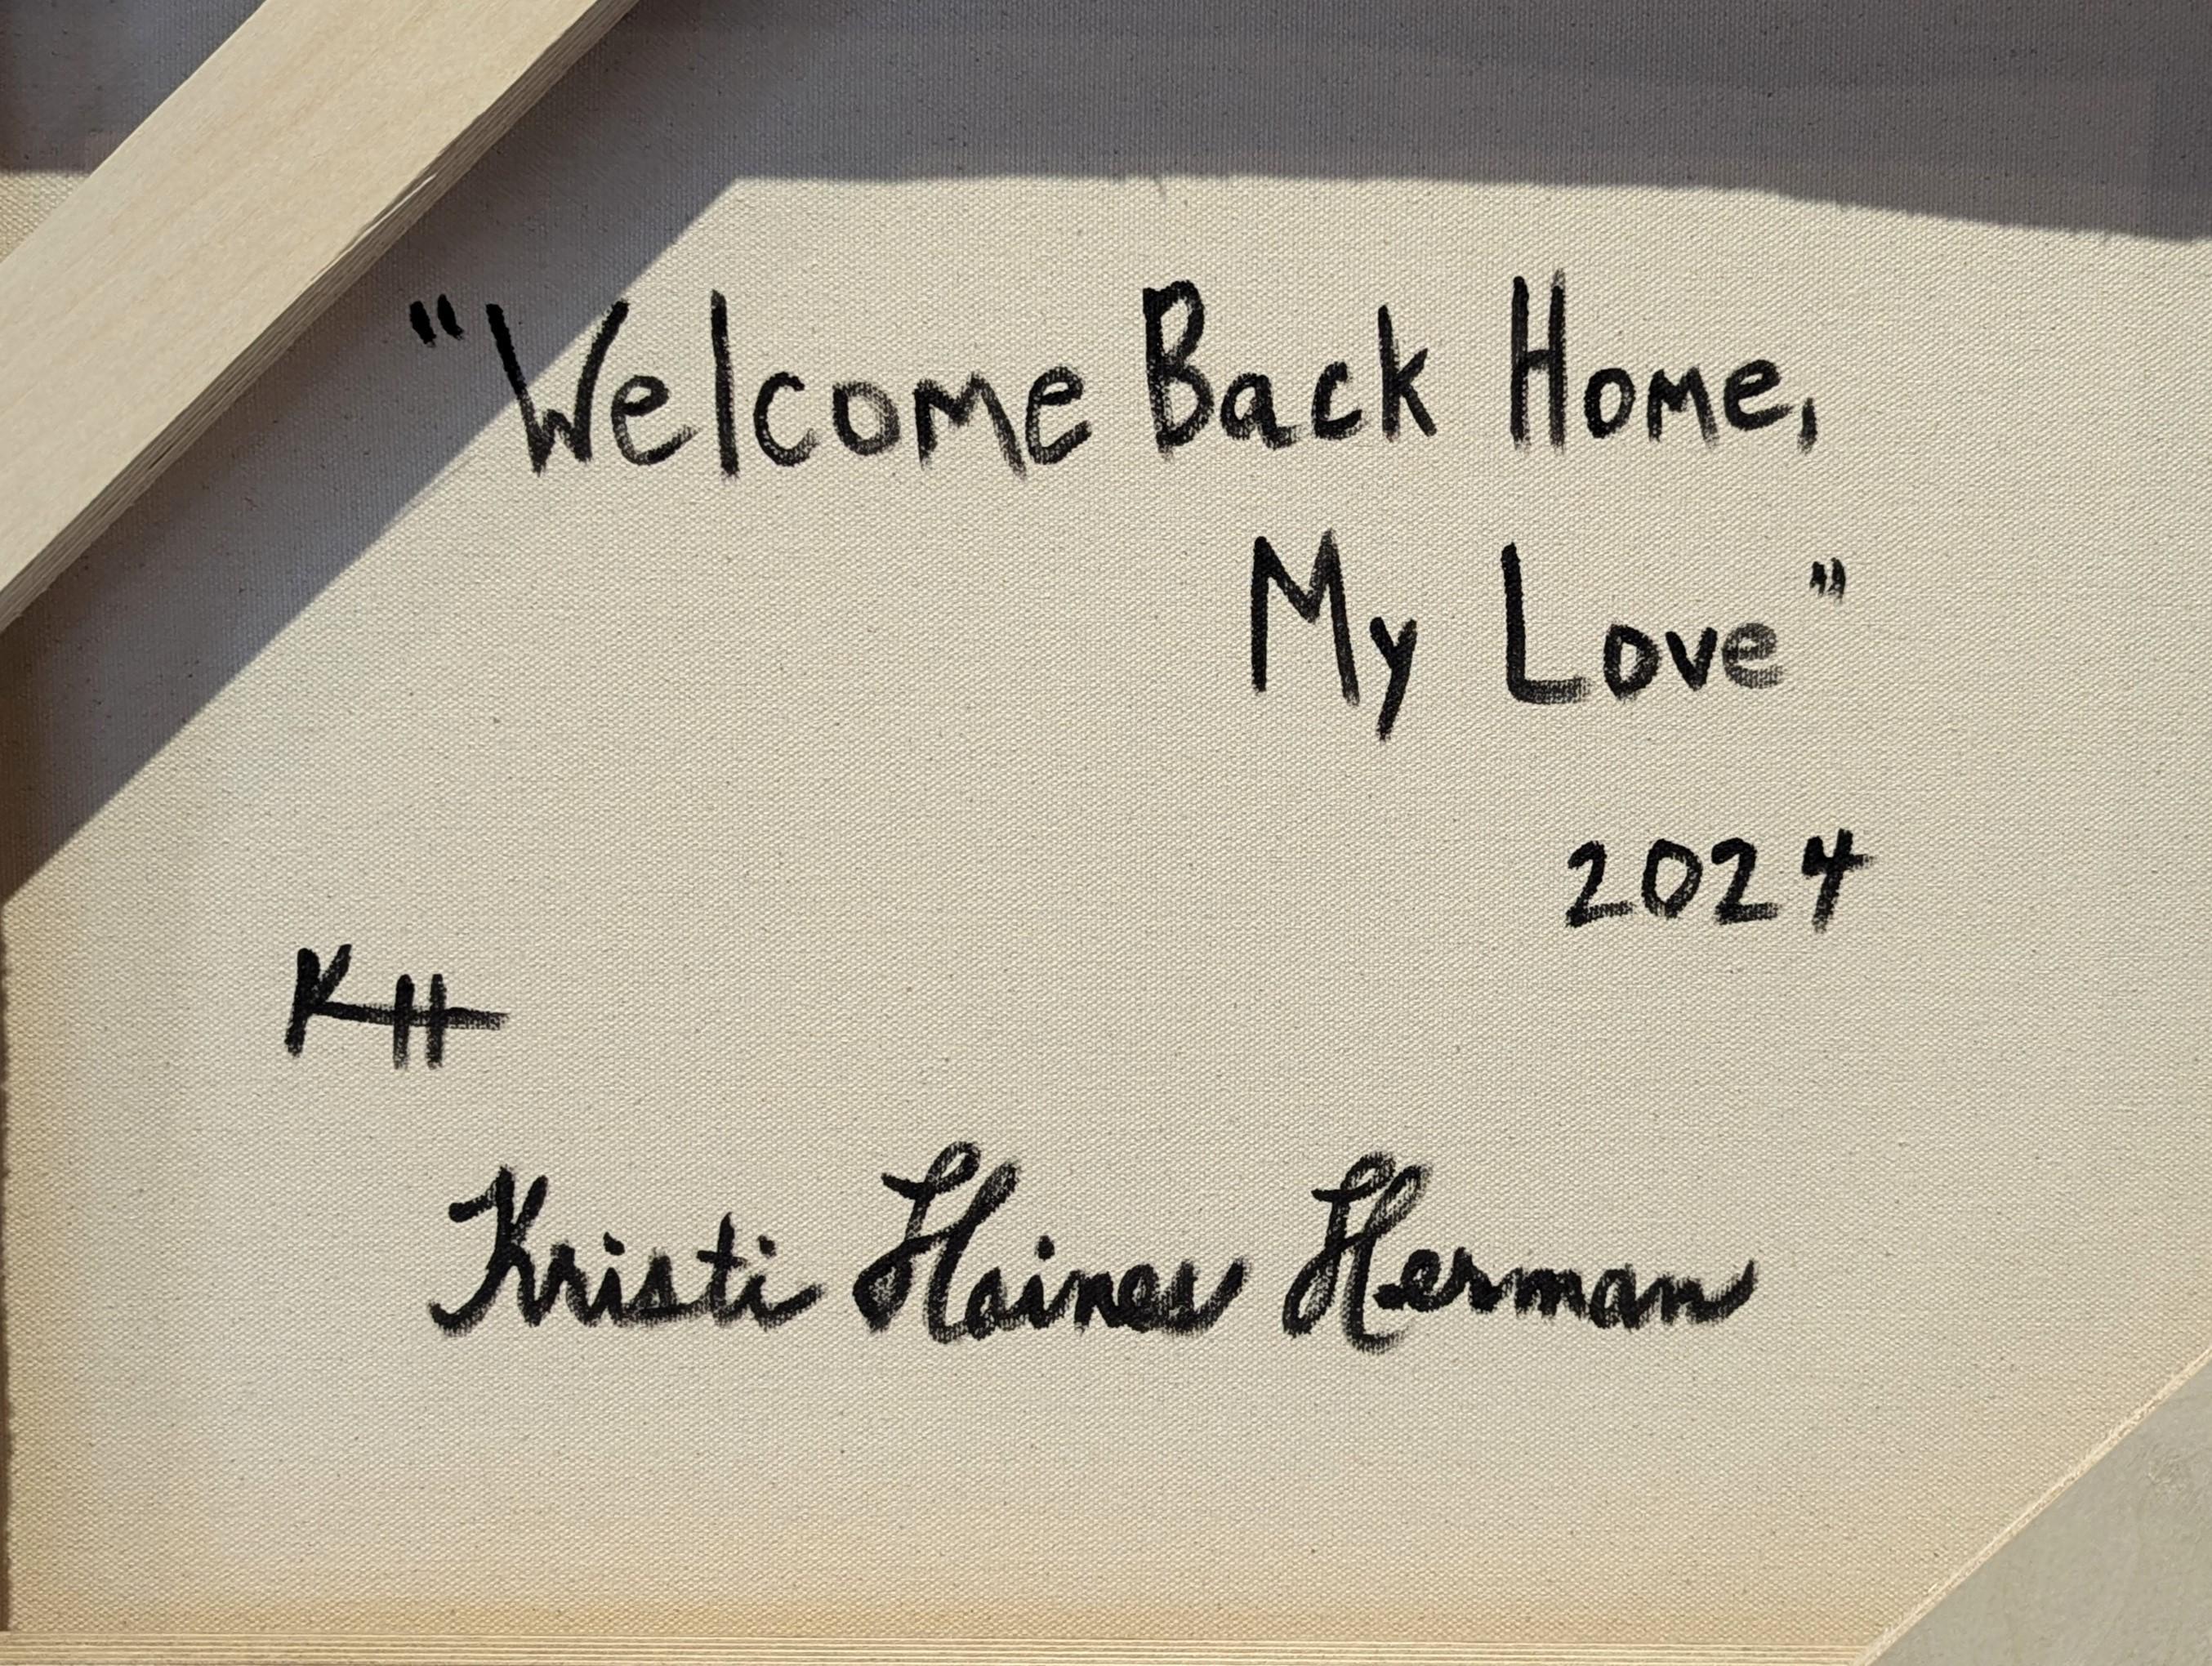 "Welcome Back Home,
My Love"
2024
KH
Kristi Haines Herman